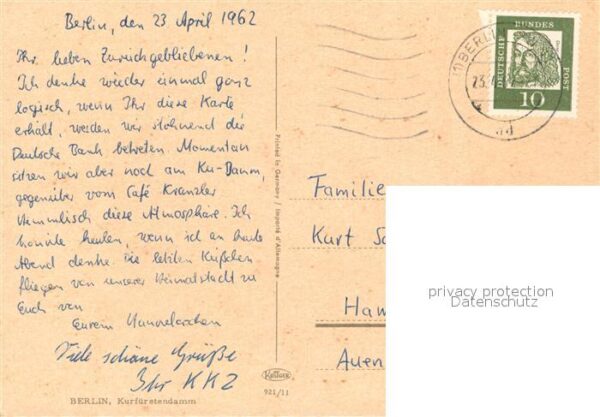 Berlin, den 23 April 1962
Ihr lieben Zurückgebliebenen!
Ich denke wieder einmal ganz
logisch, wenn Ihr diese Karte
erhält, werden wir stöhnend die
Deutsche Bank betreten. Momentan
sitzen wir aber noch am Ku-Damm,
gegenüber vom Café Kranzler
Himmlisch diese Atmosphäre. Ich
könnte heulen, wenn ich an heute
Abend denke. Die letzten Küßchen
fliegen von unserer Heimatstadt zu
Euch von
Eurem
Viele schöne Grüße
Ihr KKZ
BERLIN, Kurfürstendamm
Printed in Germany / Importé d'Allemagne
Krüger
921/11
BERLIN
23.
DEUTSCHE
BUNDES
POST
10
Familie
Kurt
Ham
Auen
privacy protection
Datenschutz